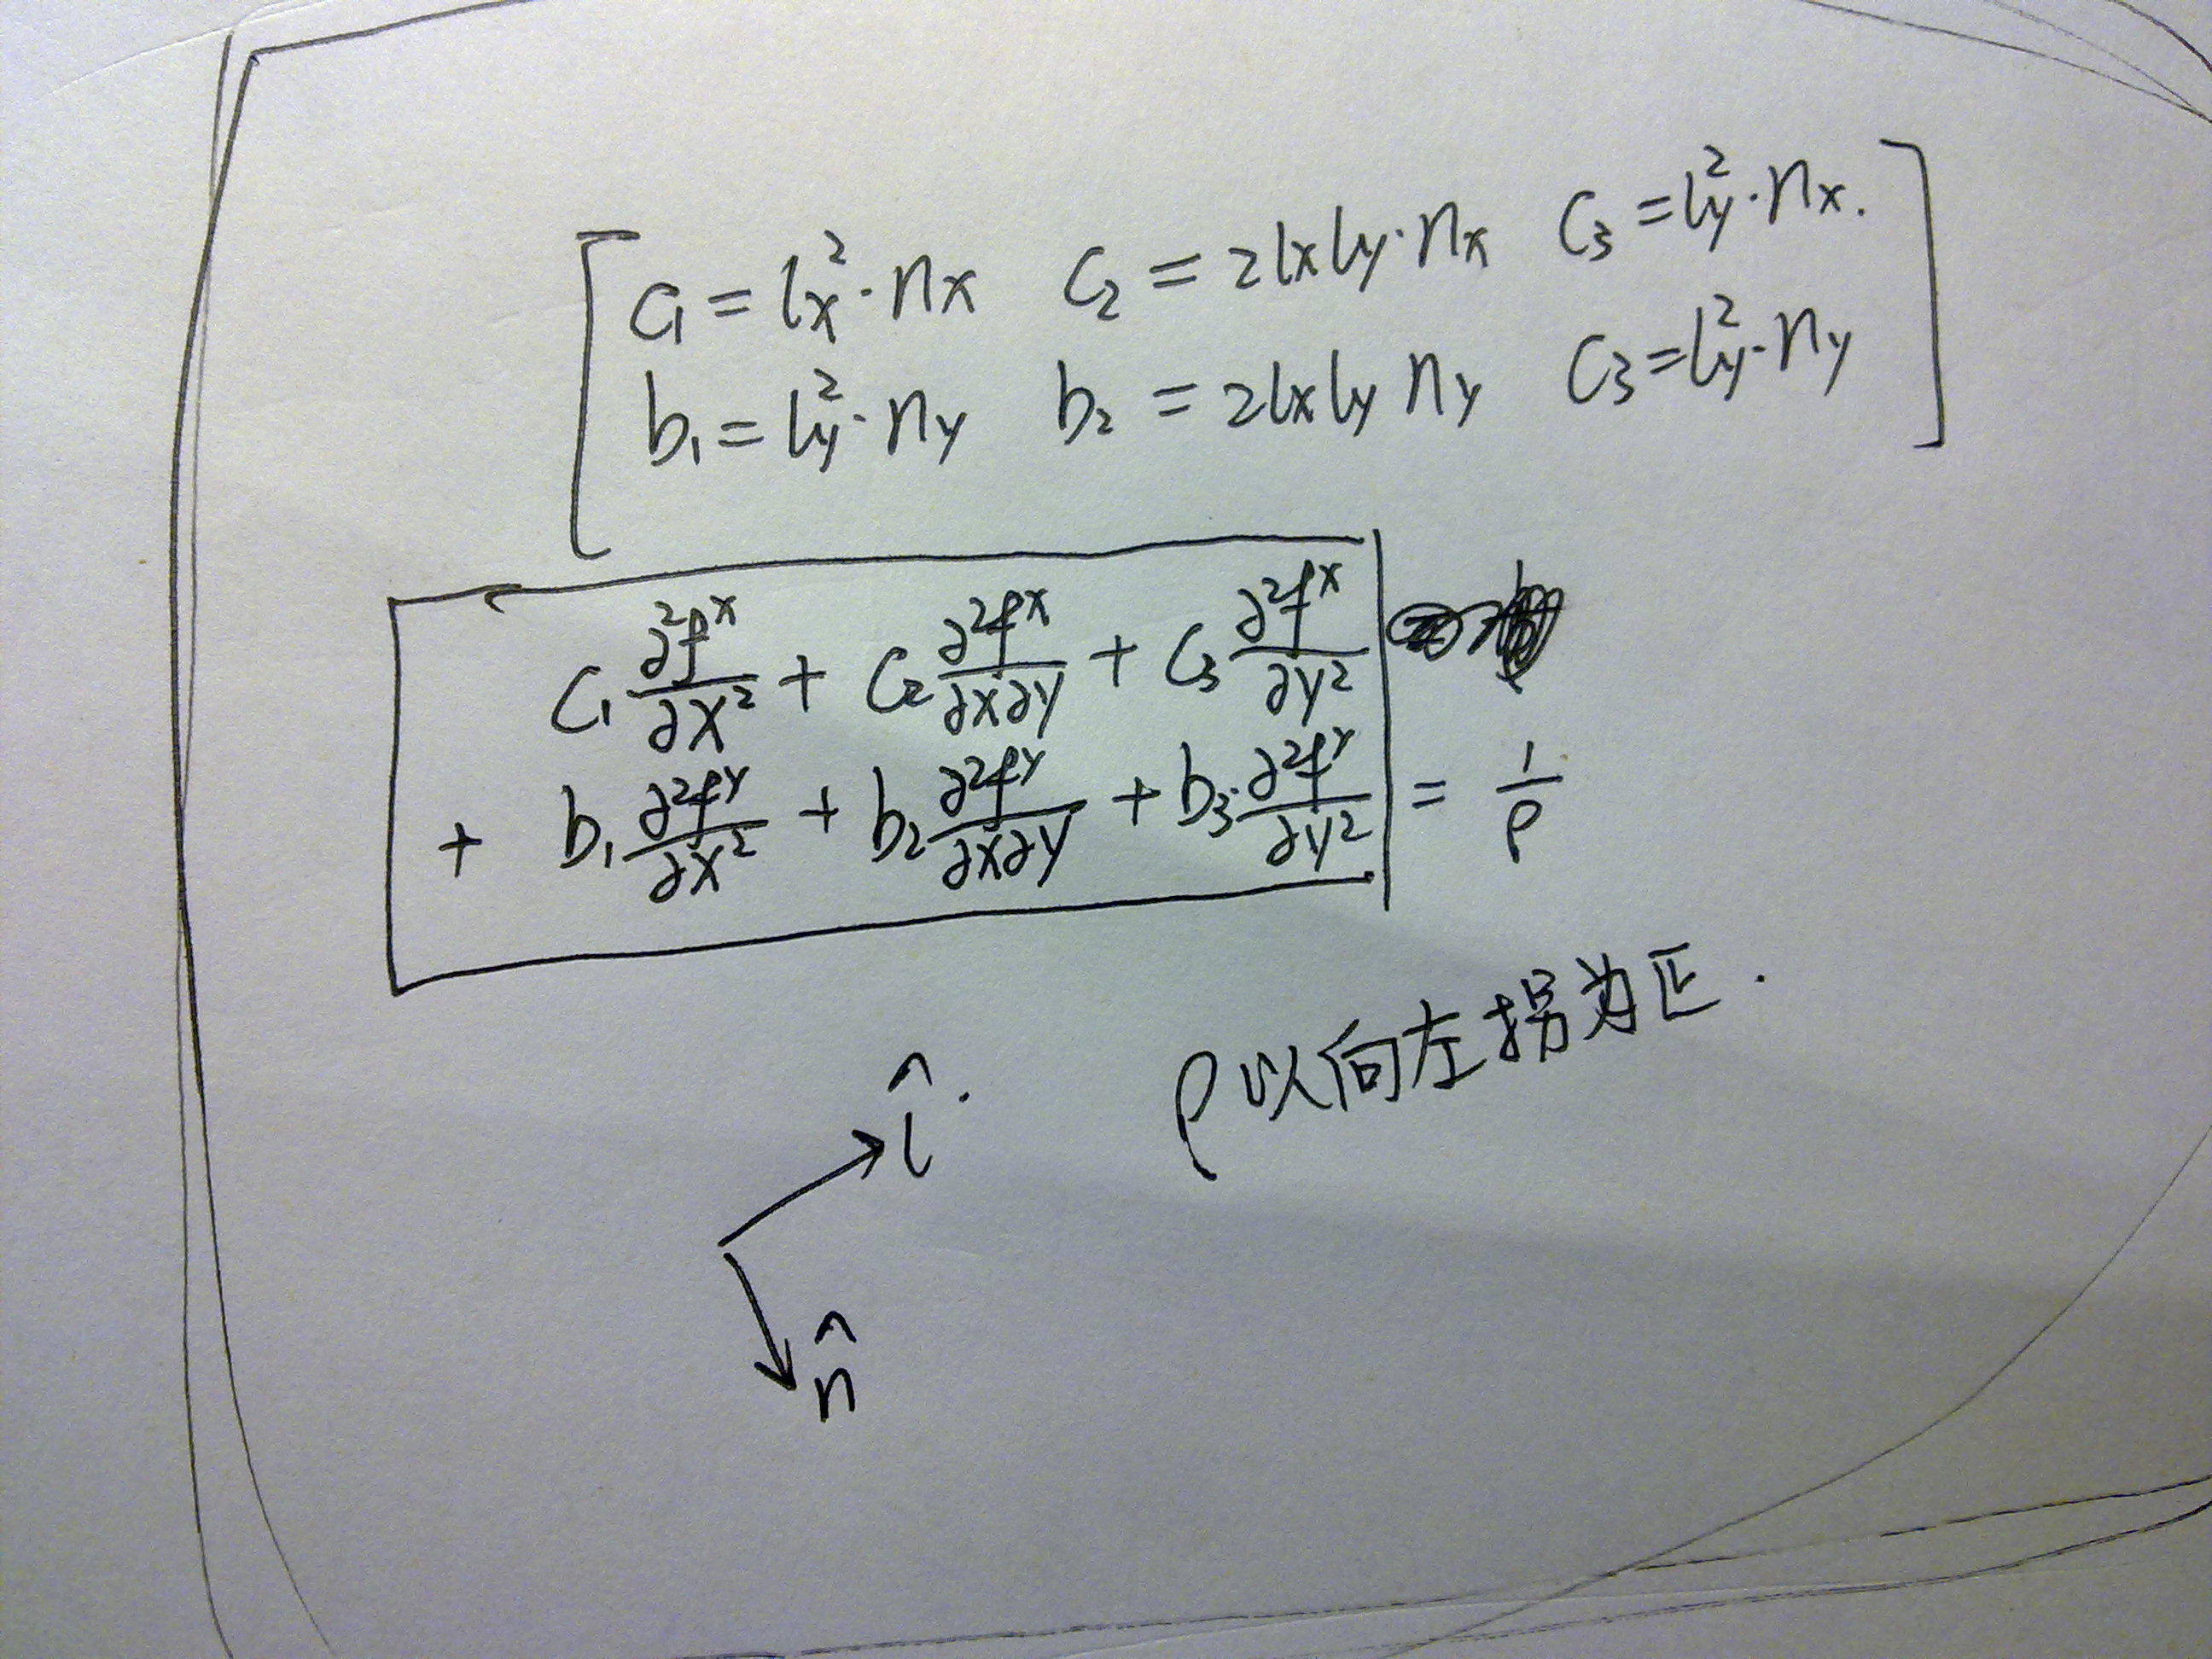 C₁ = lₓ² · nₓ C₂ = 2lₓl_y · nₓ C₃ = l_y² · nₓ.
b₁ = l_y² · n_y b₂ = 2lₓl_y n_y C₃ = l_y² · n_y
C₁ ∂²fˣ/∂x² + C₂ ∂²fˣ/∂x∂y + C₃ ∂²fˣ/∂y²
+ b₁ ∂²fʸ/∂x² + b₂ ∂²fʸ/∂x∂y + b₃ ∂²fʸ/∂y² = 1/ρ
ρ以向左拐为正.
l̂.
n̂